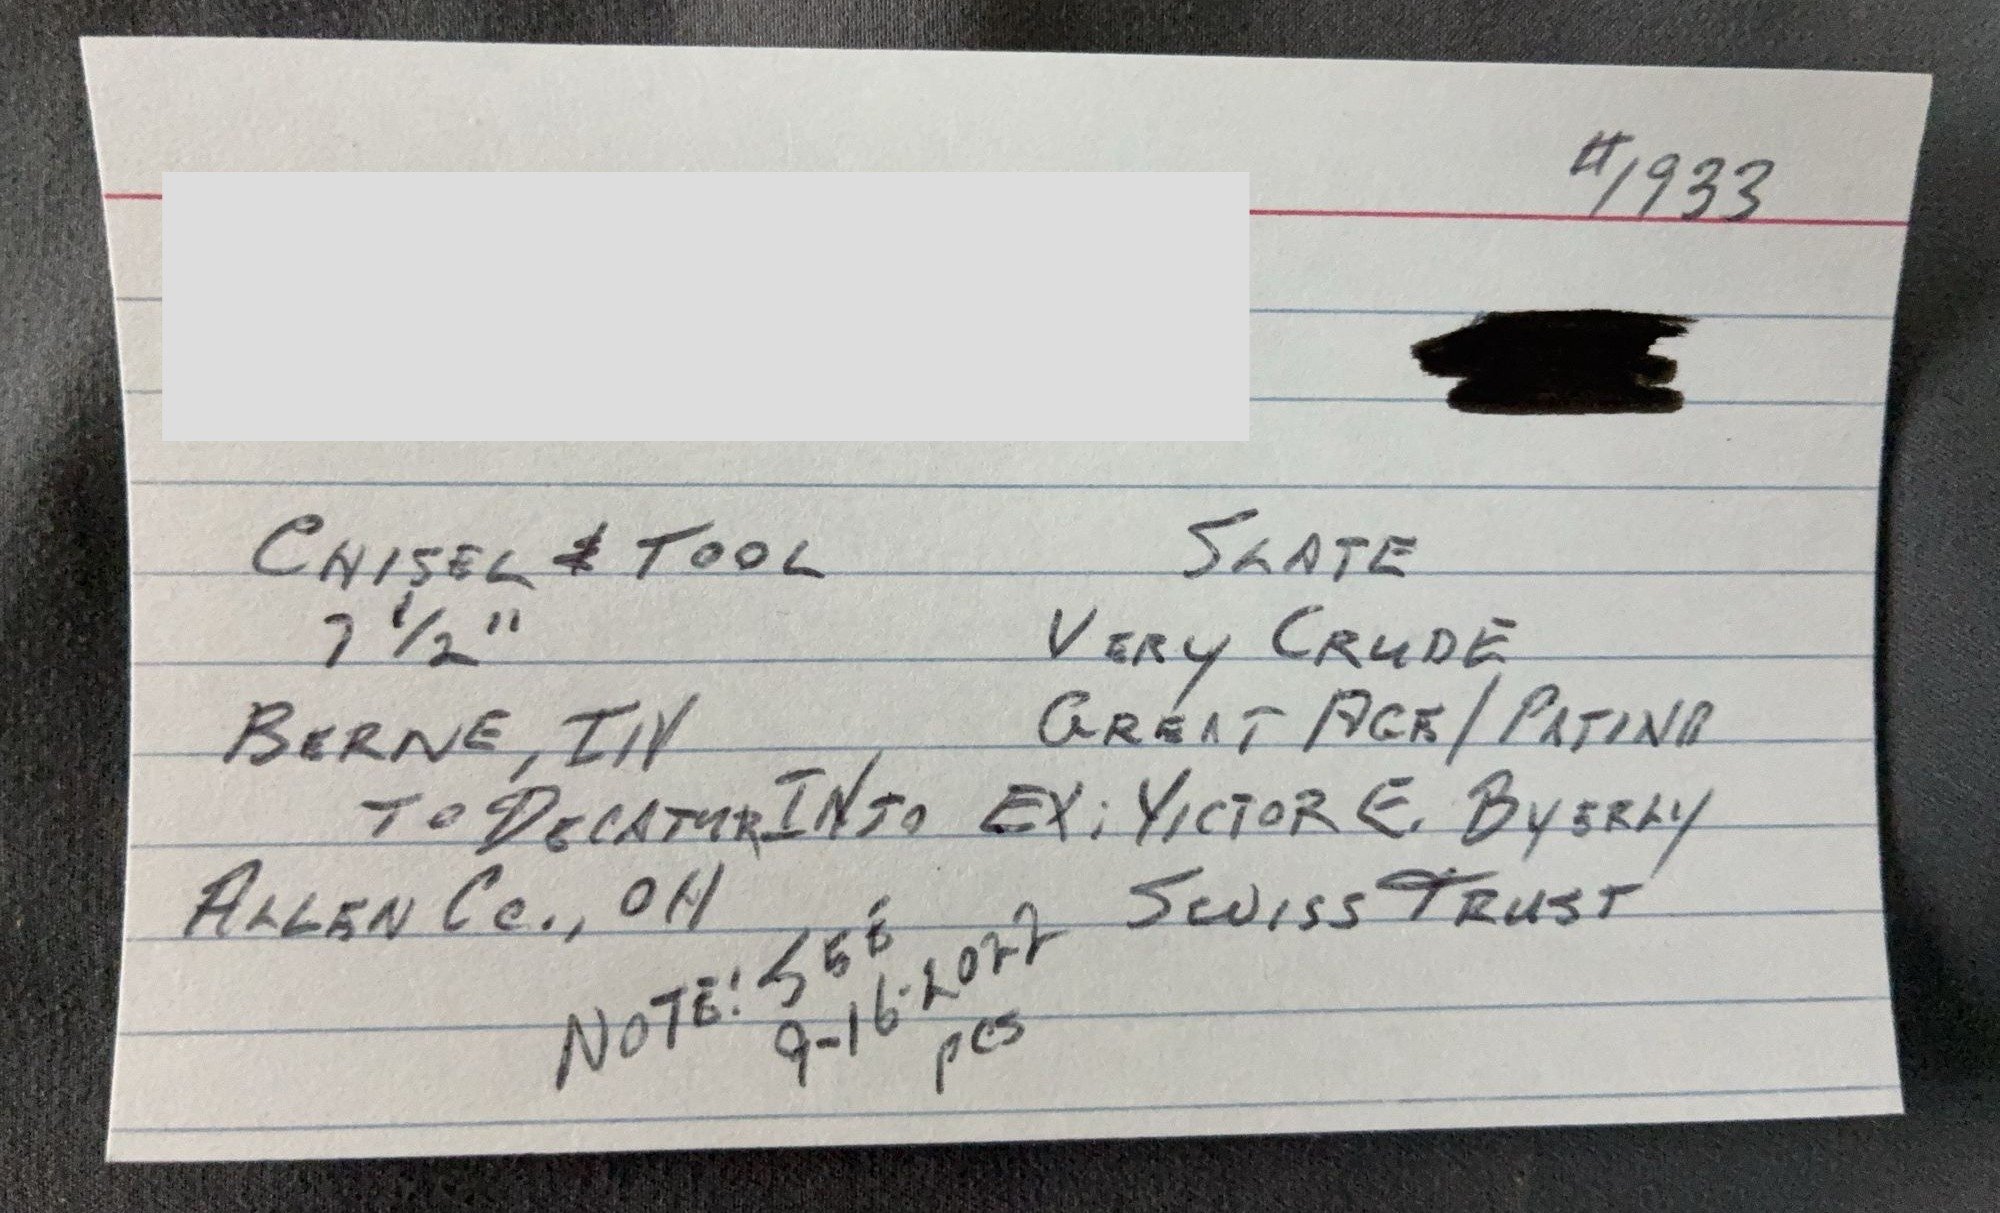 #1933
CHISEL & TOOL SLATE
7 1/2" VERY CRUDE
BERNE, IN GREAT AGE/PATINA
TO DECATUR IN TO EX: VICTOR E. BYERLY
ALLEN Co., OH SWISS TRUST
NOTE: SEE
9-16-2022
pcs